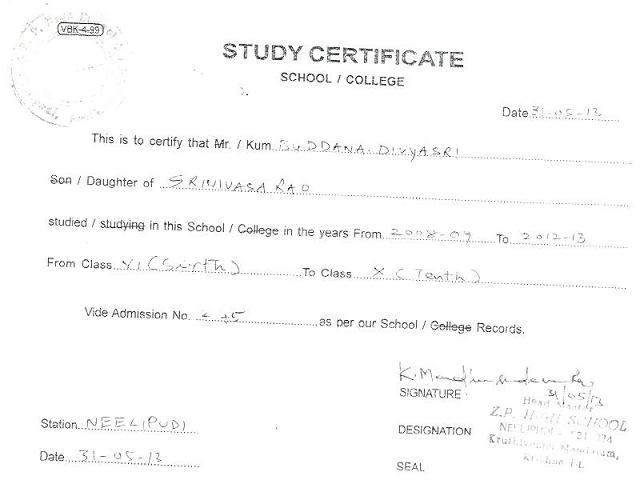 VBK-4-99
STUDY CERTIFICATE
SCHOOL / COLLEGE
Date 31-05-13
This is to certify that Mr. / Kum BUDDANA. DIVYASRI
Son / Daughter of SRINIVASA RAO
studied / studying in this School / College in the years From 2008-09 To 2012-13
From Class VI (Sixth) To Class X (Tenth)
Vide Admission No. as per our School / College Records.
K.
SIGNATURE 31/05/13
Head Master
Z.P. HIGH SCHOOL
DESIGNATION NEELIPUDI
Kruthivennu Mandalam,
SEAL Krishna Dt.
Station NEELIPUDI
Date 31-05-13